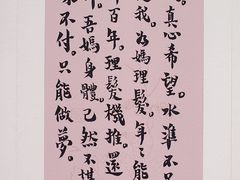 真心希望。水準不
我为媽理髮。年年能
百年。理髮機推還
吾媽身體已然不堪
不付。只能做夢。